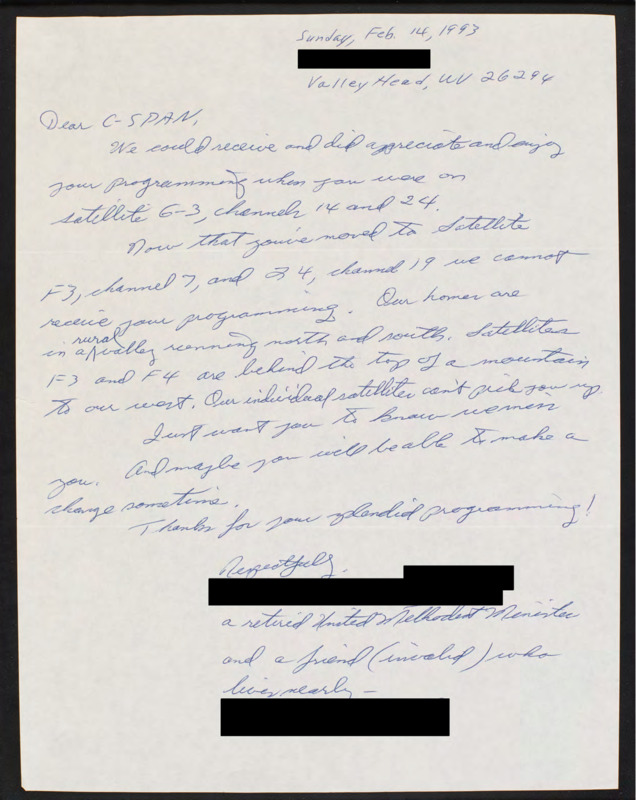 Sunday, Feb. 14, 1993
Valley Head, WV 26294
Dear C-SPAN,
We could receive and did appreciate and enjoy
your programming when you were on
satellite G-3, channels 14 and 24.
Now that you've moved to Satellite
F3, channel 7, and F4, channel 19 we cannot
receive your programming. Our homes are
in a rural valley running north and south. Satellites
F3 and F4 are behind the top of a mountain
to our west. Our individual satellites can't pick you up
Just want you to know we miss
you. And maybe you will be able to make a
change sometime.
Thanks for your splendid programming!
Respectfully,
a retired United Methodist Minister
and a friend (invalid) who
lives nearby —